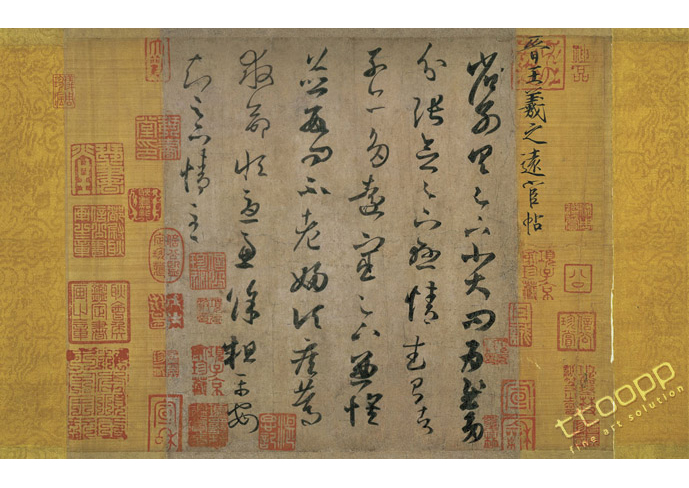 晉王羲之遠宦帖
省別具足下小大問為慰多
分張念足下懸情武昌諸
子亦多遠宦足下兼懷
並數問不老婦頃疾篤
救命恒憂慮餘粗平安
知足下情至
ttoopp
fine art solution